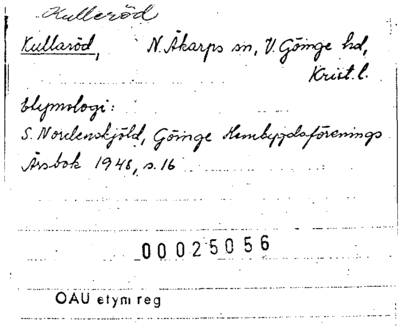 Kulleröd
Kullaröd, N. Åkarps sn, V. Göinge hd,
Krist. l.
Etymologi:
S. Nordenskjöld, Göinge Hembygdsförenings
Årsbok 1948, s. 16
00025056
OAU etym reg